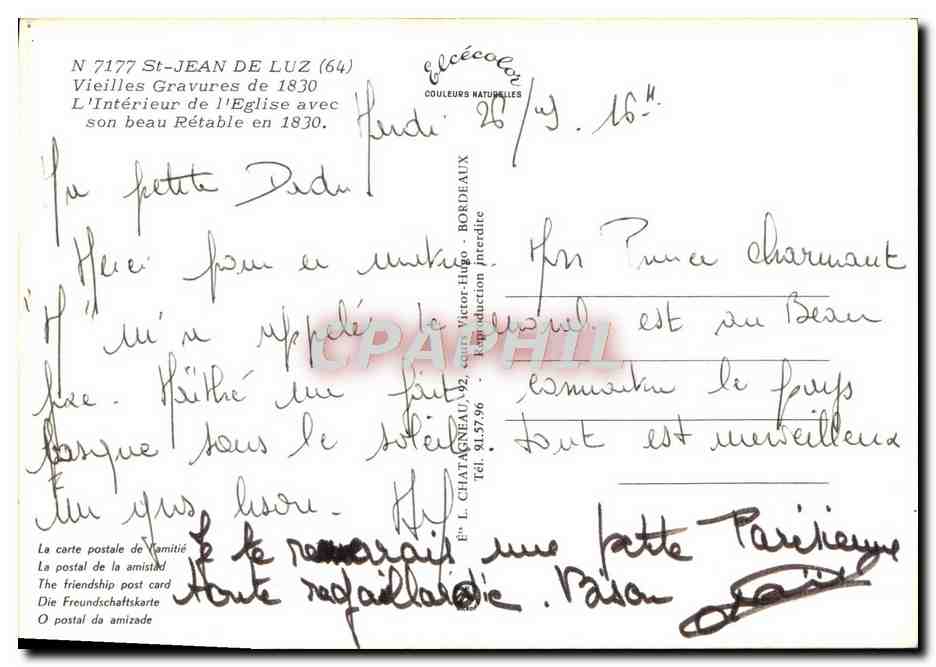 N 7177 St-JEAN DE LUZ (64)
Vieilles Gravures de 1830
L'Intérieur de l'Eglise avec
son beau Rétable en 1830.
Elcécolor
COULEURS NATURELLES
26/ 16H
petite Dadu
Merci pour Mon Prince charmant
"M" m'a appelée le moral est au Beau
fixe. Maïthé me fait connaitre le pays
basque sous le soleil. tout est merveilleux
Un gros bisou.
Je te ramènerais une petite Parisienne
toute ragaillardie. Bison
Éts L. CHATAGNEAU, 92, cours Victor-Hugo - BORDEAUX
Tél. 91.57.96 - Reproduction interdite
CPAPHIL
La carte postale de l'amitié
La postal de la amistad
The friendship post card
Die Freundschaftskarte
O postal da amizade